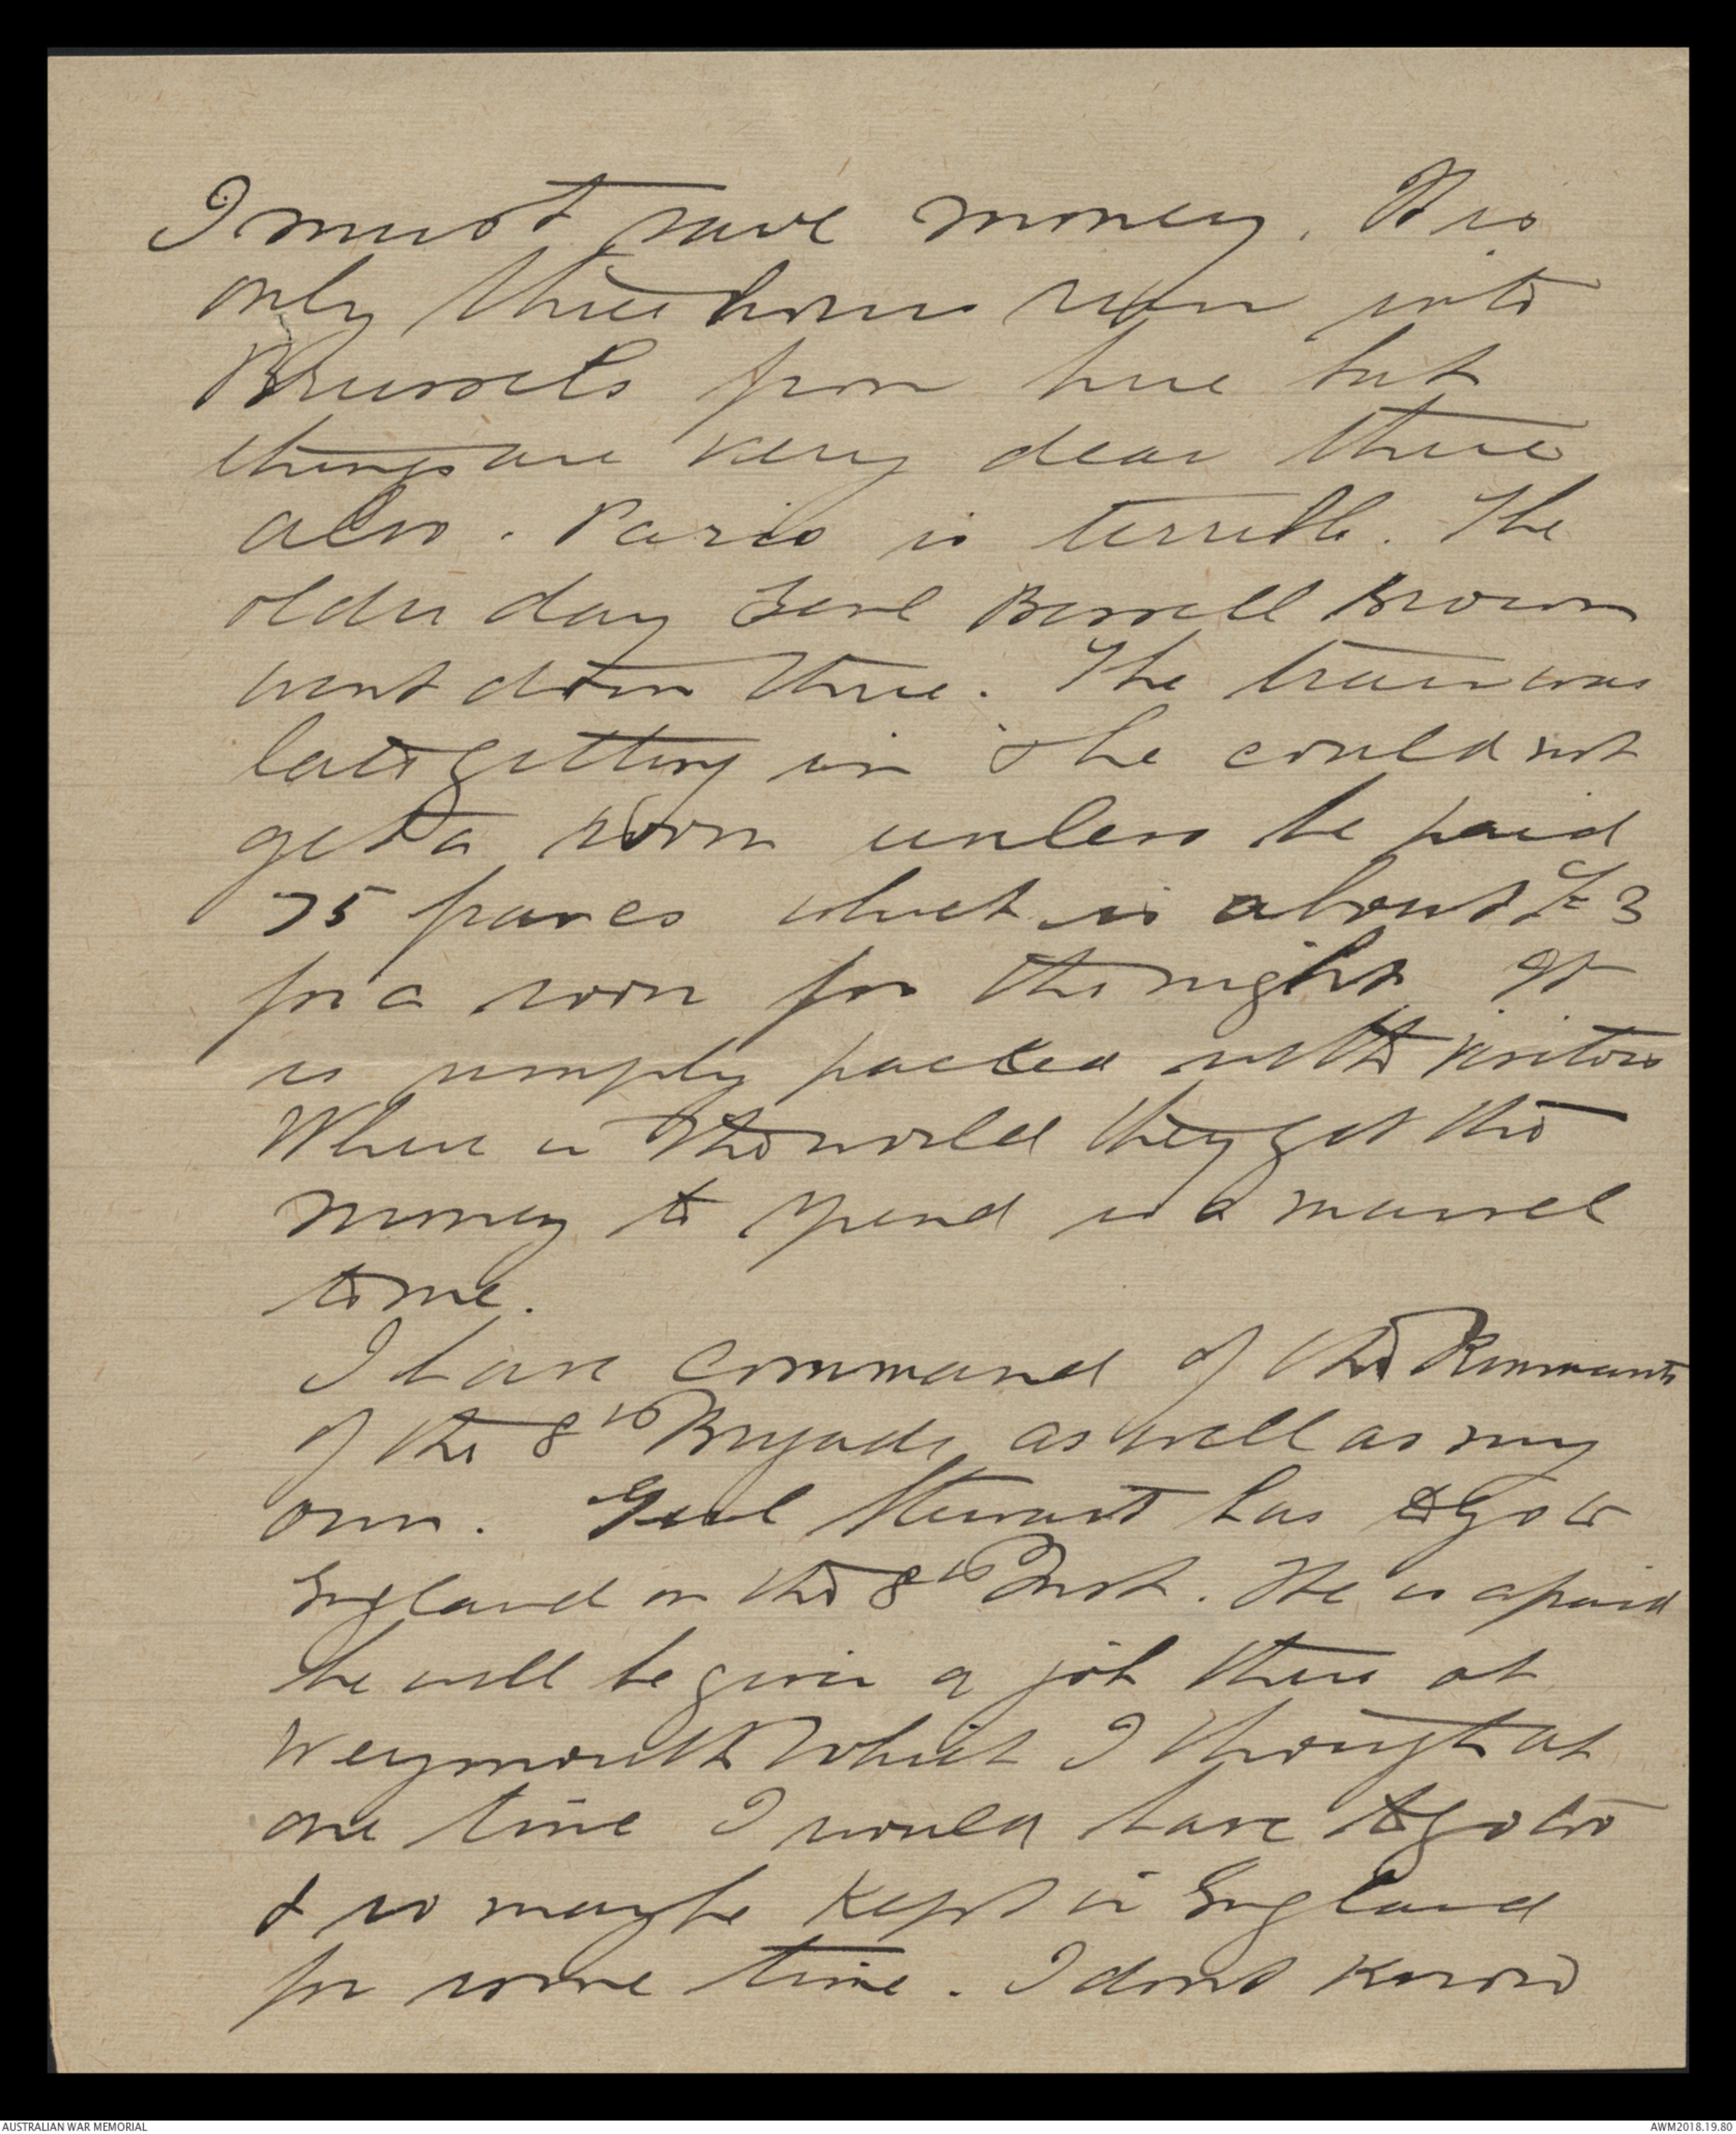 I must save money. It is
only three hours run into
Brussels from here but
things are very dear there
also. Paris is terrible. The
older day Genl Bessell Brown
went down there. The train was
late getting in & he could not
get a room unless he paid
75 francs which is about £3
for a room for the night. It
is simply packed with visitors
Where in the world they get the
money to spend is a marvel
to me.
I have command of the Remnants
of the 8th Brigade, as well as my
own. Genl Stewart has to go to
England on the 8th Inst. He is afraid
he will be given a job there at
Weymouth which I thought at
one time I would have to go to
& so maybe kept in England
for some time. I dont know
AUSTRALIAN WAR MEMORIAL
AWM2018.19.80